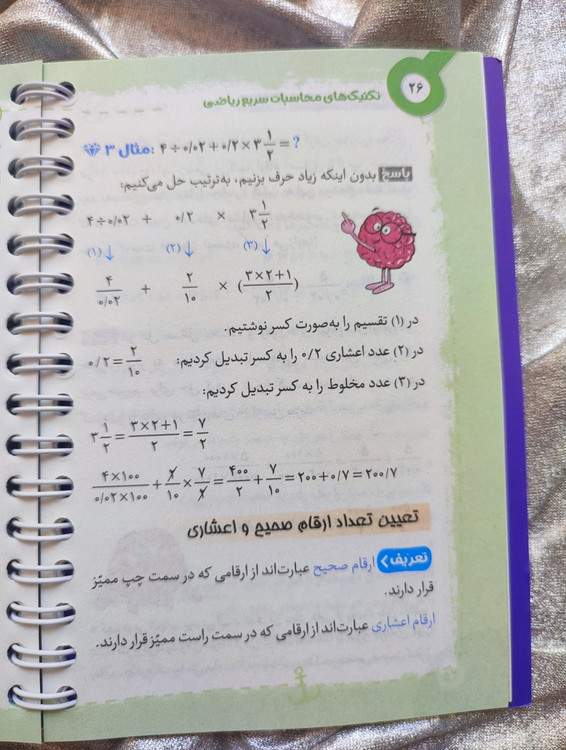 ۲۶
تکنیک‌های محاسبات سریع ریاضی
مثال ۳: ۴ ÷ ۰/۰۲ + ۰/۲ × ۳ ۱/۲ = ?
پاسخ بدون اینکه زیاد حرف بزنیم، به‌ترتیب حل می‌کنیم:
۴ ÷ ۰/۰۲ + ۰/۲ × ۳ ۱/۲
(۱) ↓ (۲) ↓ (۳) ↓
۴/۰/۰۲ + ۲/۱۰ × (۳×۲+۱/۲)
در (۱) تقسیم را به‌صورت کسر نوشتیم.
در (۲) عدد اعشاری ۰/۲ را به کسر تبدیل کردیم: ۰/۲ = ۲/۱۰
در (۳) عدد مخلوط را به کسر تبدیل کردیم:
۳ ۱/۲ = ۳×۲+۱/۲ = ۷/۲
۴×۱۰۰/۰/۰۲×۱۰۰ + ۲/۱۰ × ۷/۲ = ۴۰۰/۲ + ۷/۱۰ = ۲۰۰ + ۰/۷ = ۲۰۰/۷
تعیین تعداد ارقام صحیح و اعشاری
تعریف ارقام صحیح عبارت‌اند از ارقامی که در سمت چپ ممیّز
قرار دارند.
ارقام اعشاری عبارت‌اند از ارقامی که در سمت راست ممیّز قرار دارند.